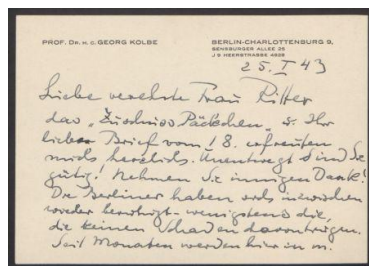 PROF. DR. H. C. GEORG KOLBE
BERLIN-CHARLOTTENBURG 9,
SENSBURGER ALLEE 25
J 9 HEERSTRASSE 4808
25. I 43
Liebe verehrte Frau Ritter
das „Zuschuss Päckchen“ u. Ihr
lieber Brief vom 18. erfreuten
mich herzlich. Unentwegt sind Sie
gütig! Nehmen Sie innigen Dank!
Die Berliner haben sich inzwischen
wieder beruhigt - wenigstens die,
die keinen Schaden davontrugen.
Seit Monaten werden hier in m.